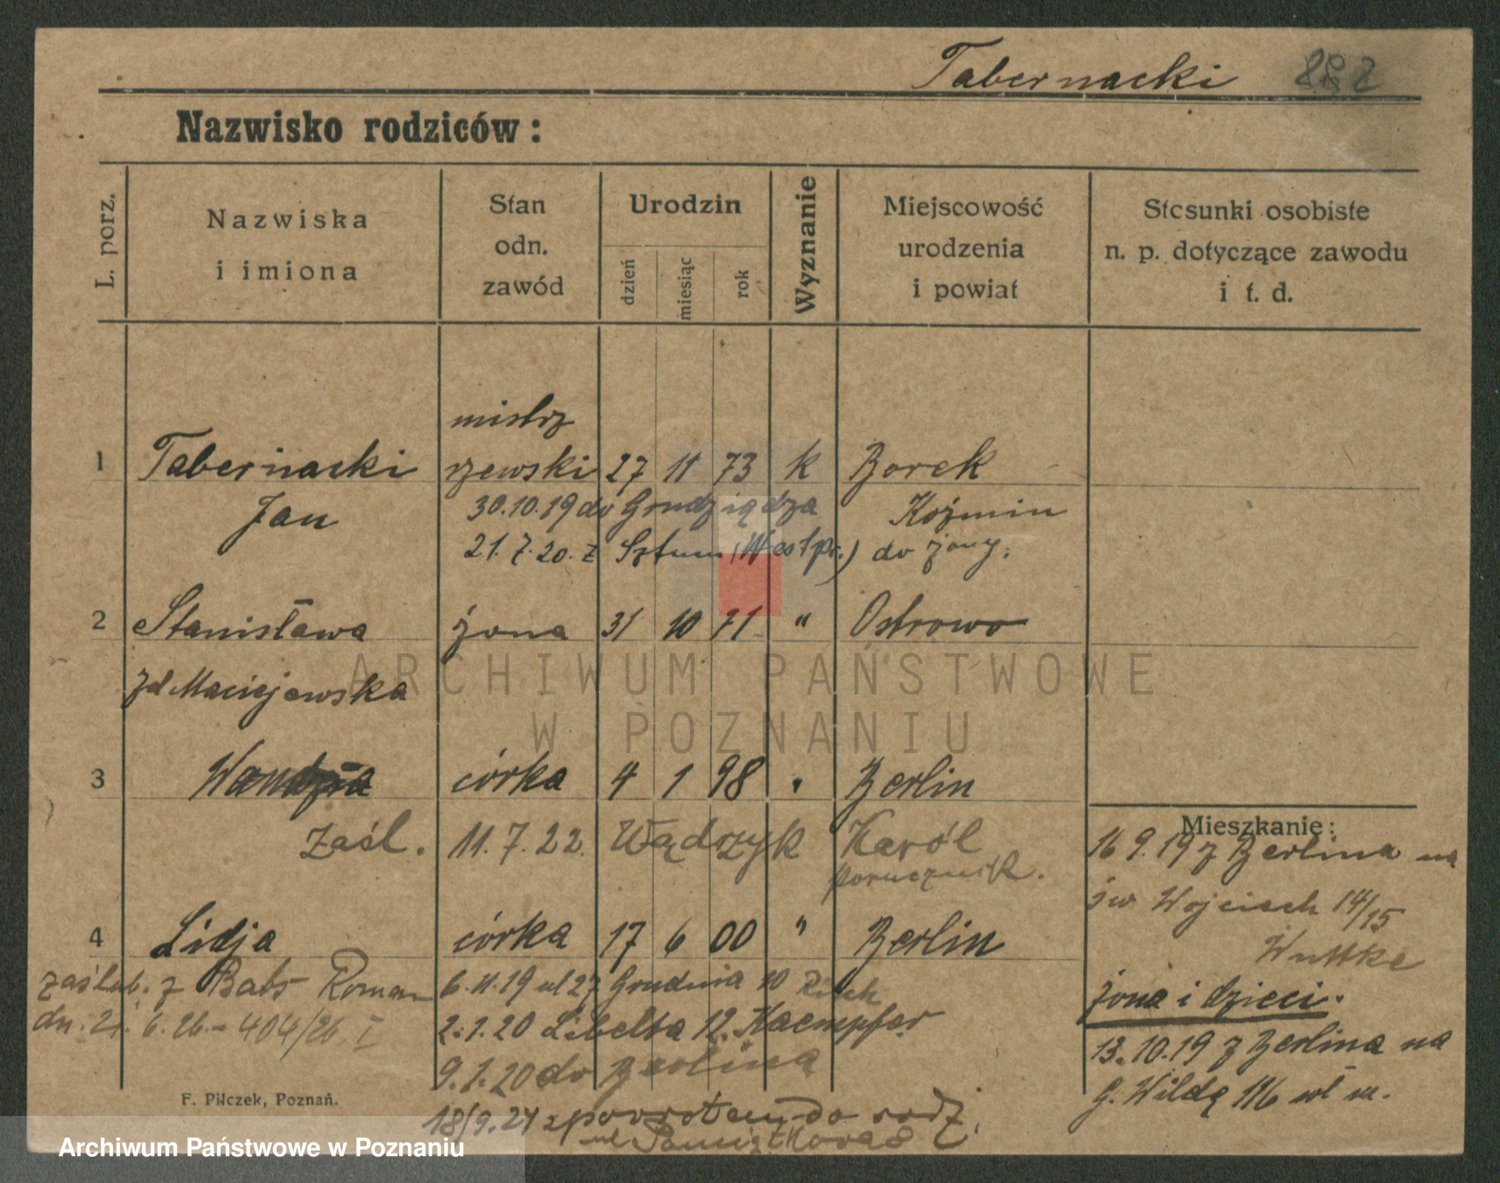 Tabernacki
Nazwisko rodziców:
L. porz.
Nazwiska
i imiona
Stan
odn.
zawód
Urodzin
dzień
miesiąc
rok
Wyznanie
Miejscowość
urodzenia
i powiat
Stosunki osobiste
n. p. dotyczące zawodu
i t. d.
mistrz
1 Tabernacki szewski 27 11 73 k Borek
Jan 30.10.19 do Grudziądza Koźmin
21.7.20. z Sztum (Westpr.) do żony.
2 Stanisława żona 31 10 71 " Ostrowo
zd Maciejewska
ARCHIWUM PAŃSTWOWE
W POZNANIU
3 córka 4 1 98 " Berlin
zaśl. 11.7.22. Wądrzyk Karól
porucznik.
4 Lidja córka 17 6 00 " Berlin
zaślub. z Babs Roman 6.11.19 ul 27 Grudnia 10
dn. 21. 6. 26. - 404/26 I 2.1.20 Libelta 12. Kaempfer
9.1.20 do Berlina
18/9.24 z powrotem do rodz.
Mieszkanie:
16 9.19 z Berlina na
św Wojciech 14/15
Wuttke
żona i dzieci.
13.10.19 z Berlina na
G. Wildę 116 wł m.
F. Pilczek, Poznań.
Archiwum Państwowe w Poznaniu